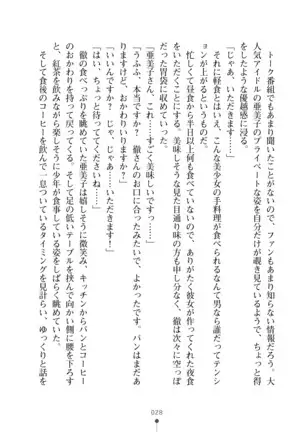 トーク番組でもあまり聞いたことがないので、ファンもあまり知らない情報だろう。大
人気アイドルの亜美子のプライベートな姿を自分だけが覗き見ているようで、ちょっと得
をしたような優越感に浸る。
「じゃあ、いただきます……」
それに軽食とはいえ、こんな美少女の手料理が食べられるなんて男なら誰だってテンシ
ョンが上がるというものだ。
忙しくて昼食から半日以上何も食べていないので、ありがたく彼女が作ってくれた夜食
を空っぽの胃袋に収めていった。美味そうな見た目通り味の方も申し分なく、いくらでも
食べられそうだ。
「亜美子さん、これ……すごく美味しいですっ」
「うふふ、本当ですか？ よかった……徹さんのお口に合ったみたいで。パンはまだあ
りますけど、おかわりどうですか？」
「いいんですか？ じゃ、じゃあ……いただきます！」
「はい、ちょっと待っててくださいね」
徹の食べっぷりを眺めていた亜美子は嬉しそうに微笑み、キッチンからパンとコーヒー
のおかわりを持って戻ってくる。そして足の低いテーブルの向かい側に腰を下ろすと
、紅茶を飲みながら楽しそうに少年が食事している姿をしばらく眺めていた。
そして食後のコーヒーを飲んで一息ついているタイミングを見計らい、ゆっくりと話を
028